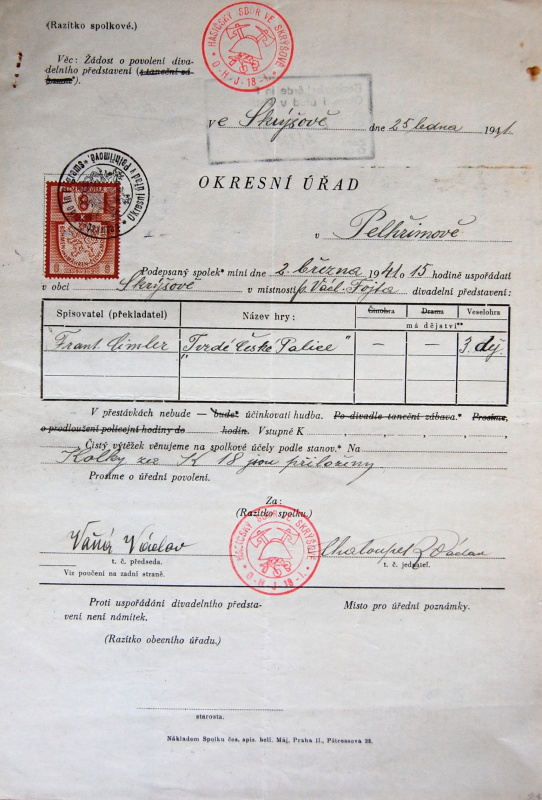 (Razítko spolkové.)
HASIČSKÝ SBOR VE SKRÝŠOVĚ
O-H-J-18-I.
Věc: Žádost o povolení diva-
delního představení (taneční zá-
bavu*).
ve Skrýšově dne 25 ledna 1941
OKRESNÍ ÚŘAD
v Pelhřimově
Podepsaný spolek* míní dne 2. března 1941 o 15 hodině uspořádati
v obci Skrýšově v místnosti p. Václ. Fojta divadelní představení:
Spisovatel (překladatel) Název hry: Činohra Drama Veselohra
má dějství**
Frant Cimler "Tvrdé České Palice" — — 3. děj.
V přestávkách nebude — bude* účinkovati hudba. Po divadle taneční zábava.* Prosíme,
o prodloužení policejní hodiny do hodin. Vstupné K
Čistý výtěžek věnujeme na spolkové účely podle stanov.* Na
Kolky za K 18 jsou přiloženy
Prosíme o úřední povolení.
Za:
(Razítko spolku)
HASIČSKÝ SBOR VE SKRÝŠOVĚ
O-H-J-18-I.
Váňa Václav Chaloupek Václav
t. č. předseda. t. č. jednatel.
Viz poučení na zadní straně.
Proti uspořádání divadelního představe-
vení není námitek.
Místo pro úřední poznámky.
(Razítko obecního úřadu.)
starosta.
Nákladem Spolku čes. spis. bell. Máj, Praha II., Pštrossova 23.